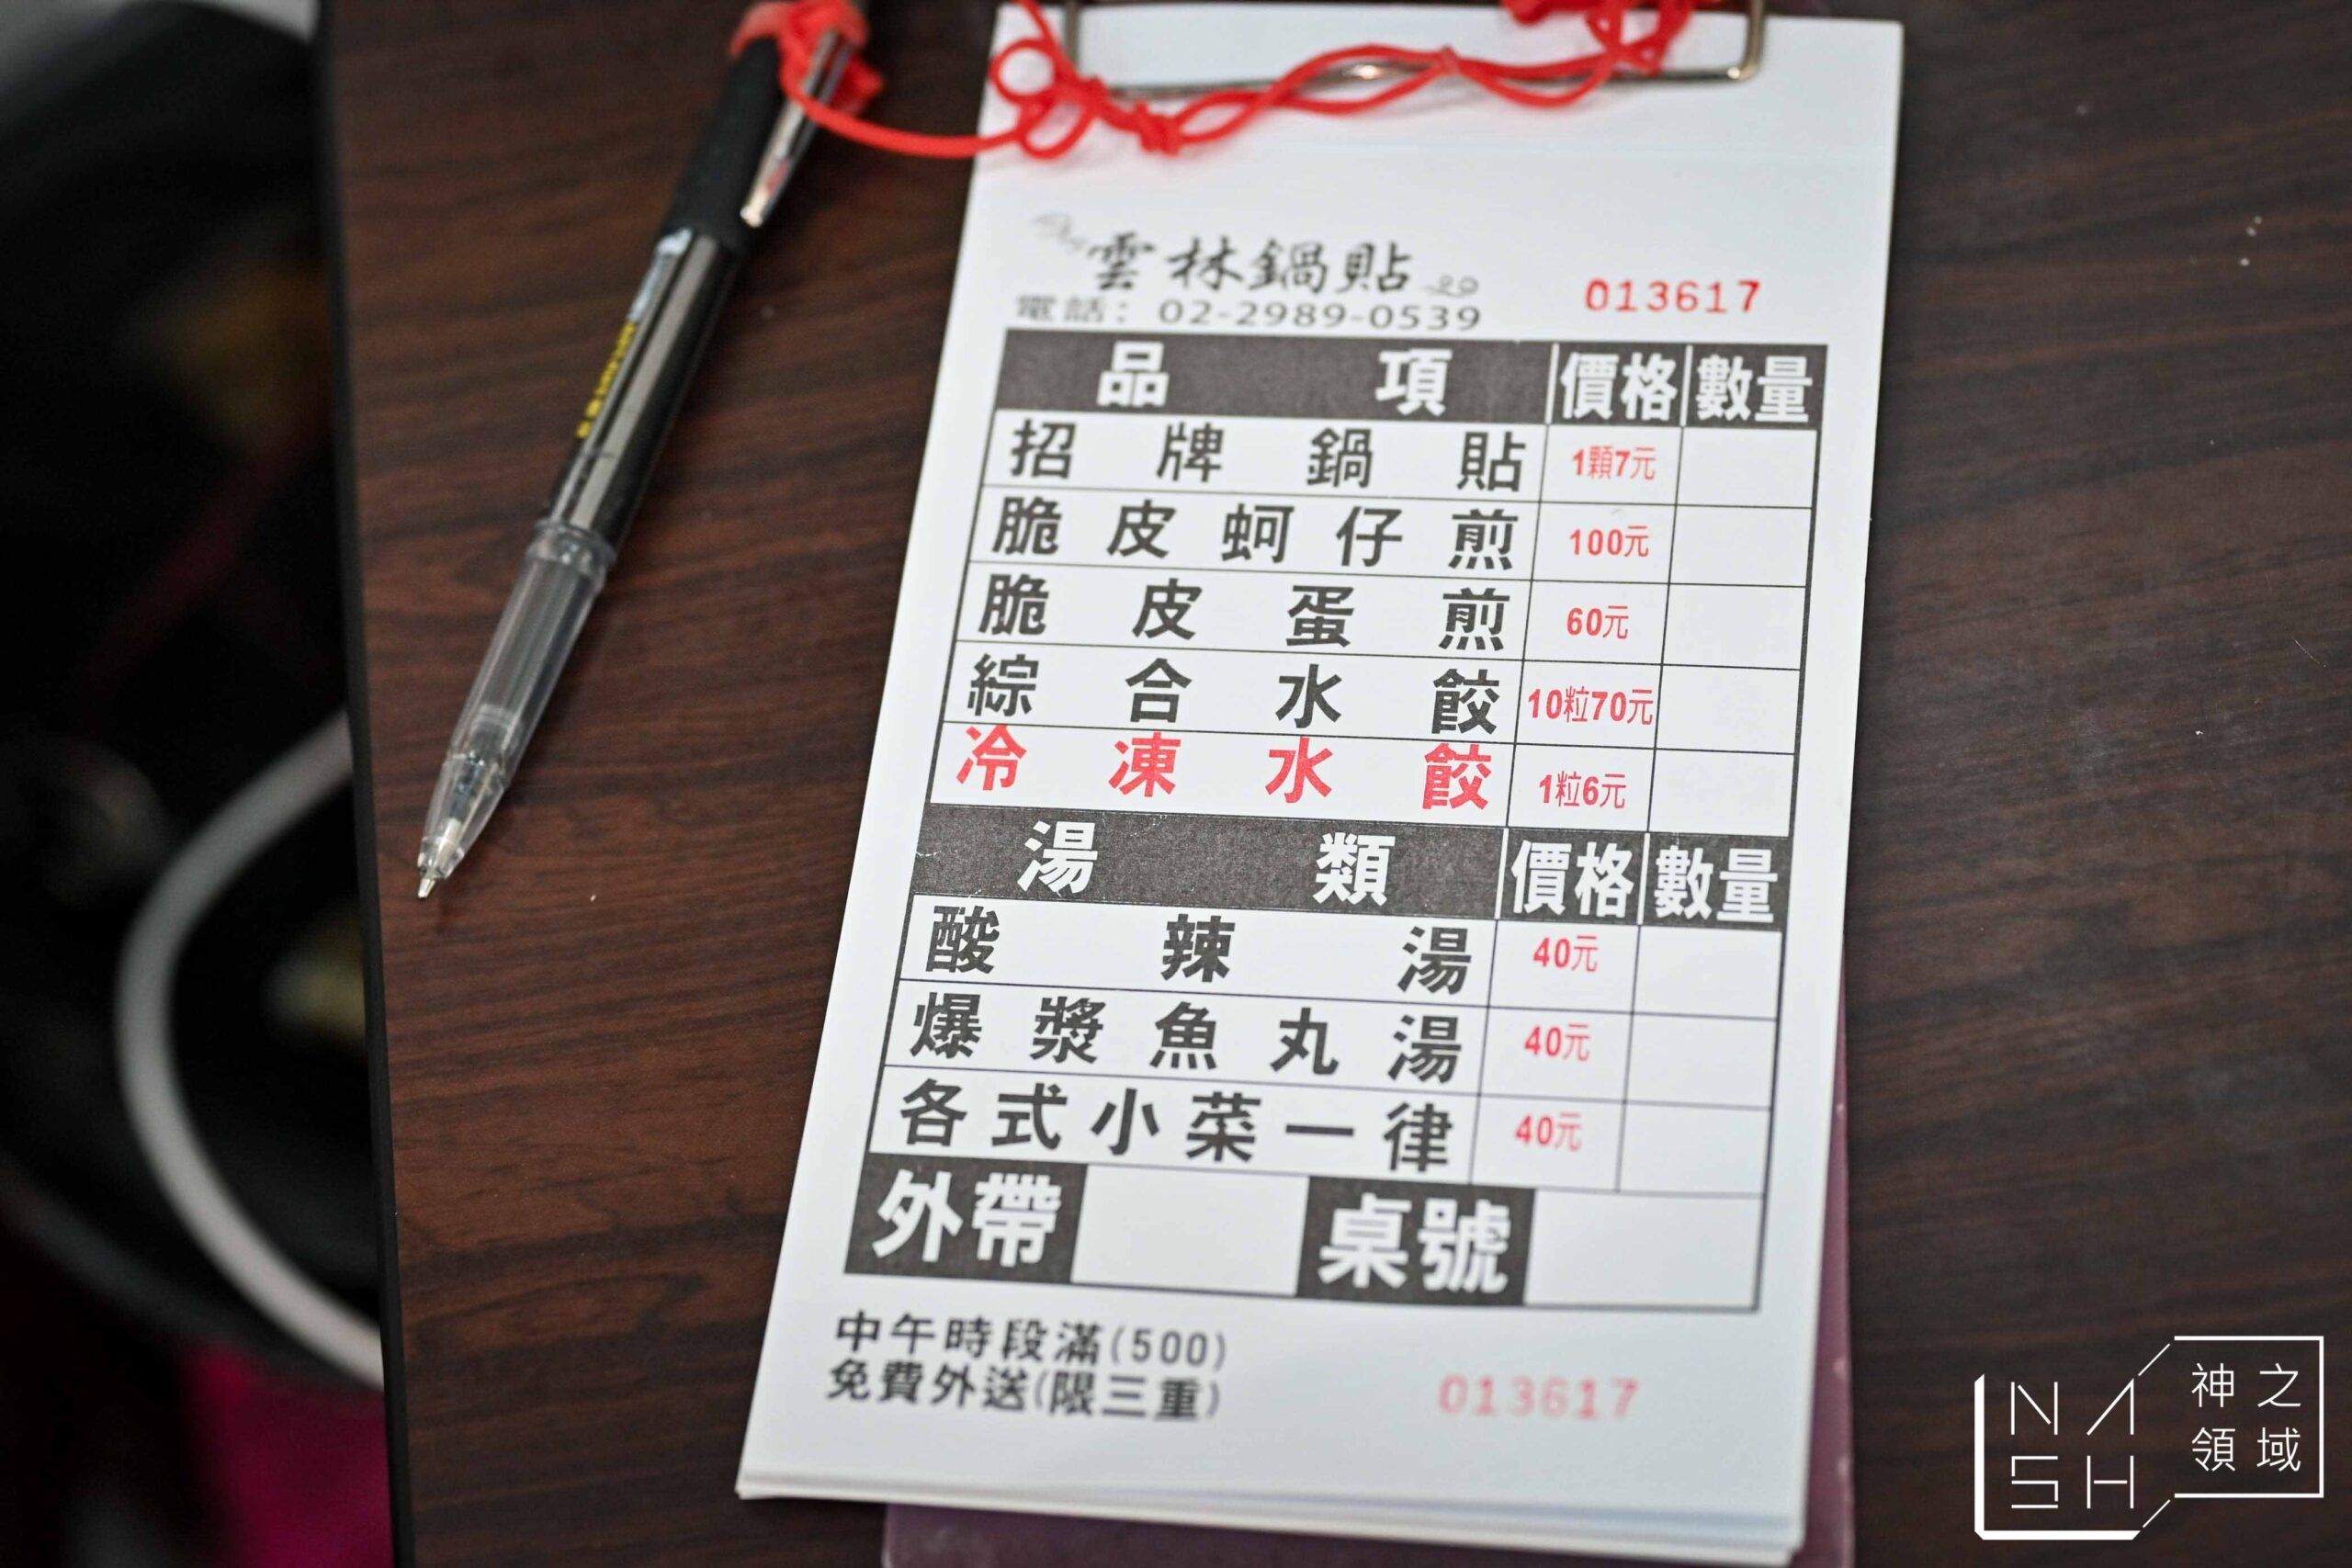 雲林鍋貼
電話：02-2989-0539
013617
品項 價格 數量
招牌鍋貼 1顆7元
脆皮蚵仔煎 100元
脆皮蛋煎 60元
綜合水餃 10粒70元
冷凍水餃 1粒6元
湯類 價格 數量
酸辣湯 40元
爆漿魚丸湯 40元
各式小菜一律 40元
外帶 桌號
中午時段滿(500)
免費外送(限三重)
013617
NASH
神之
領域